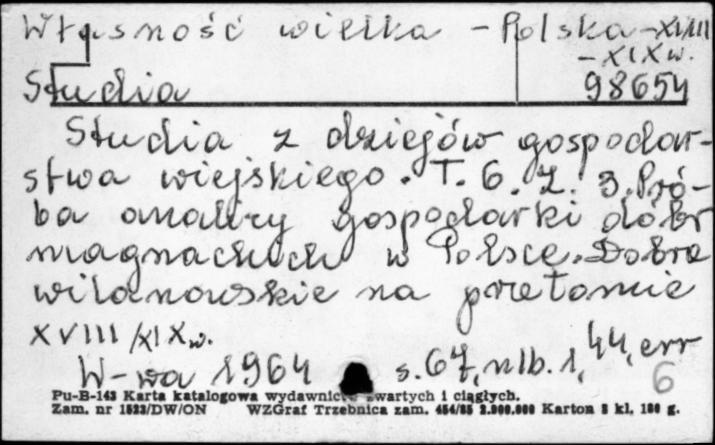 Własność wielka - Polska - XVIII
- XIX w.
Studia 98654
Studia z dziejów gospodar-
stwa wiejskiego. T. 6. Z. 3. Pró-
ba analizy gospodarki dóbr
magnackich w Polsce. Dobra
wilanowskie na przełomie
XVIII/XIX w.
W-wa 1964 s. 67, nlb. 1, 44, err
6
Pu-B-143 Karta katalogowa wydawnictw zwartych i ciągłych.
Zam. nr 1523/DW/ON WZGraf Trzebnica zam. 454/85 2.000.000 Karton 3 kl, 180 g.